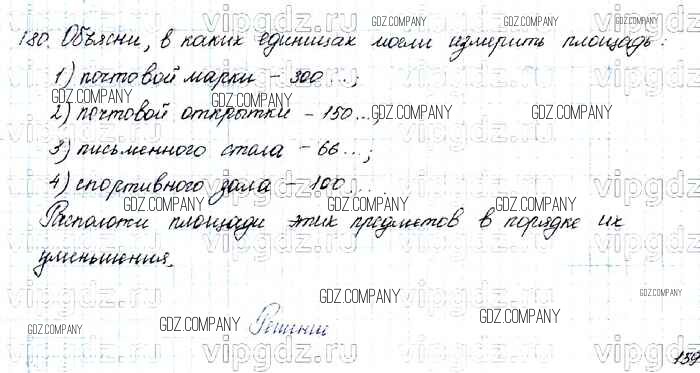 180. Объясни, в каких единицах могли измерить площадь:
1) почтовой марки – 300...;
2) почтовой открытки – 150...;
3) письменного стола – 66...;
4) спортивного зала – 100...
Расположи площади этих предметов в порядке их
уменьшения.
Решение
159
vipgdz.ru
GDZ.COMPANY